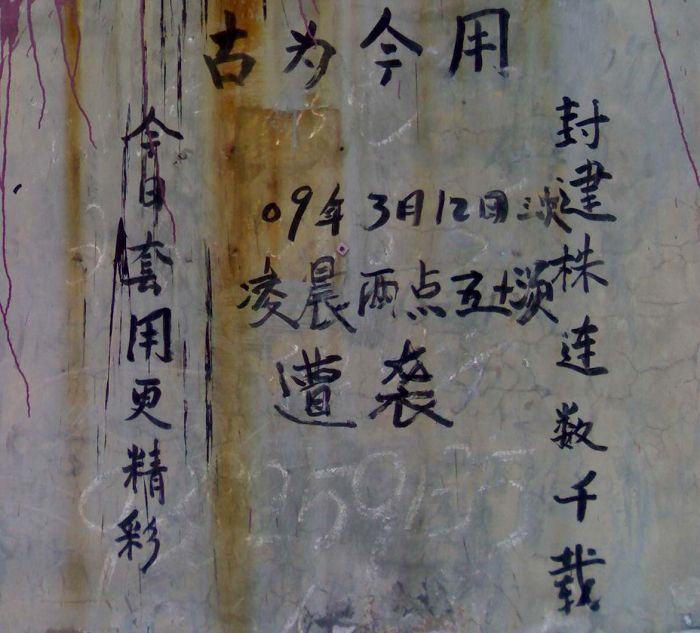 古为今用
封建株连数千载
09年3月12日
凌晨两点
遭袭
今日套用更精彩